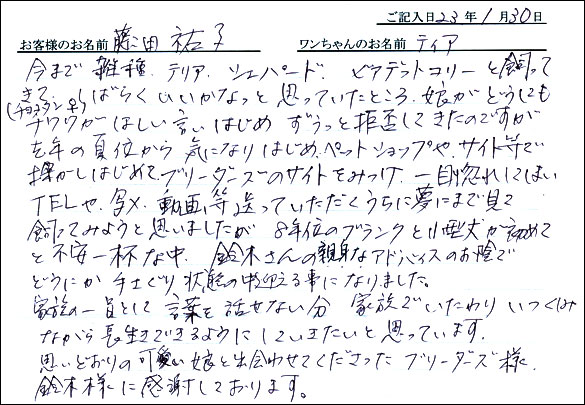 ご記入日 23年 1月30日
お客様のお名前 藤田 祐子 ワンちゃんのお名前 ティア
今まで 雑種、テリア、シェパード、ビアデットコリーと飼って
きて、しばらくいいかなっと思っていたところ、娘がどうしても
チワワがほしい言いはじめ ずうっと拒否してきたのですが
去年の夏位から 気になりはじめ、ペットショップや、サイト等で
探がしはじめて、ブリーダーズのサイトをみつけ、一目惚れしてしまい
TELや、写メ、動画等送っていただくうちに夢にまで見て
飼ってみようと思いましたが 8年位のブランクと小型犬が初めて
と不安一杯な中、鈴木さんの親身なアドバイスのお陰で
どうにか 手さぐり状態の中迎える事になりました。
家族の一員として 言葉を話せない分 家族でいたわり いつくしみ
ながら 長生きできるようにしていきたいと思っています。
思いどおりの可愛い娘と出会わせてくださった ブリーダーズ様
鈴木様に感謝しております。